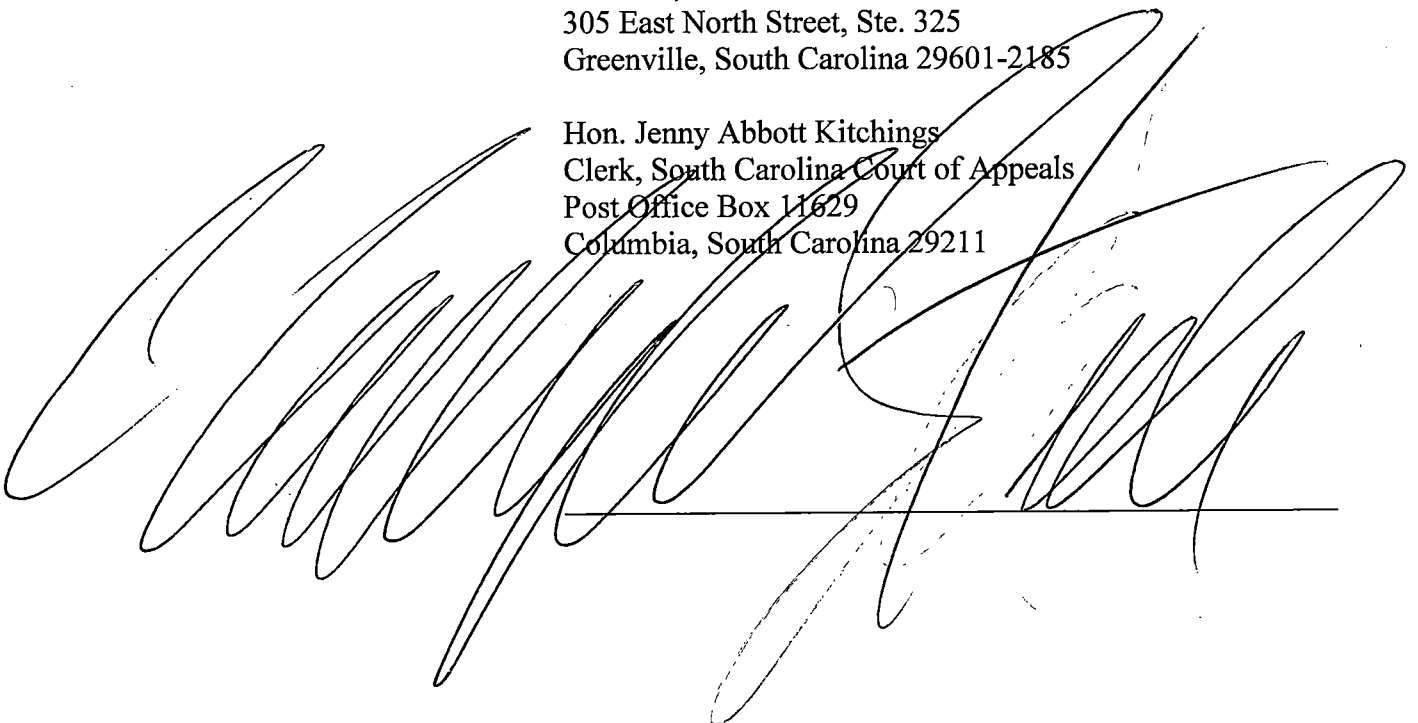 305 East North Street, Ste. 325
Greenville, South Carolina 29601-2185
Hon. Jenny Abbott Kitchings
Clerk, South Carolina Court of Appeals
Post Office Box 11629
Columbia, South Carolina 29211